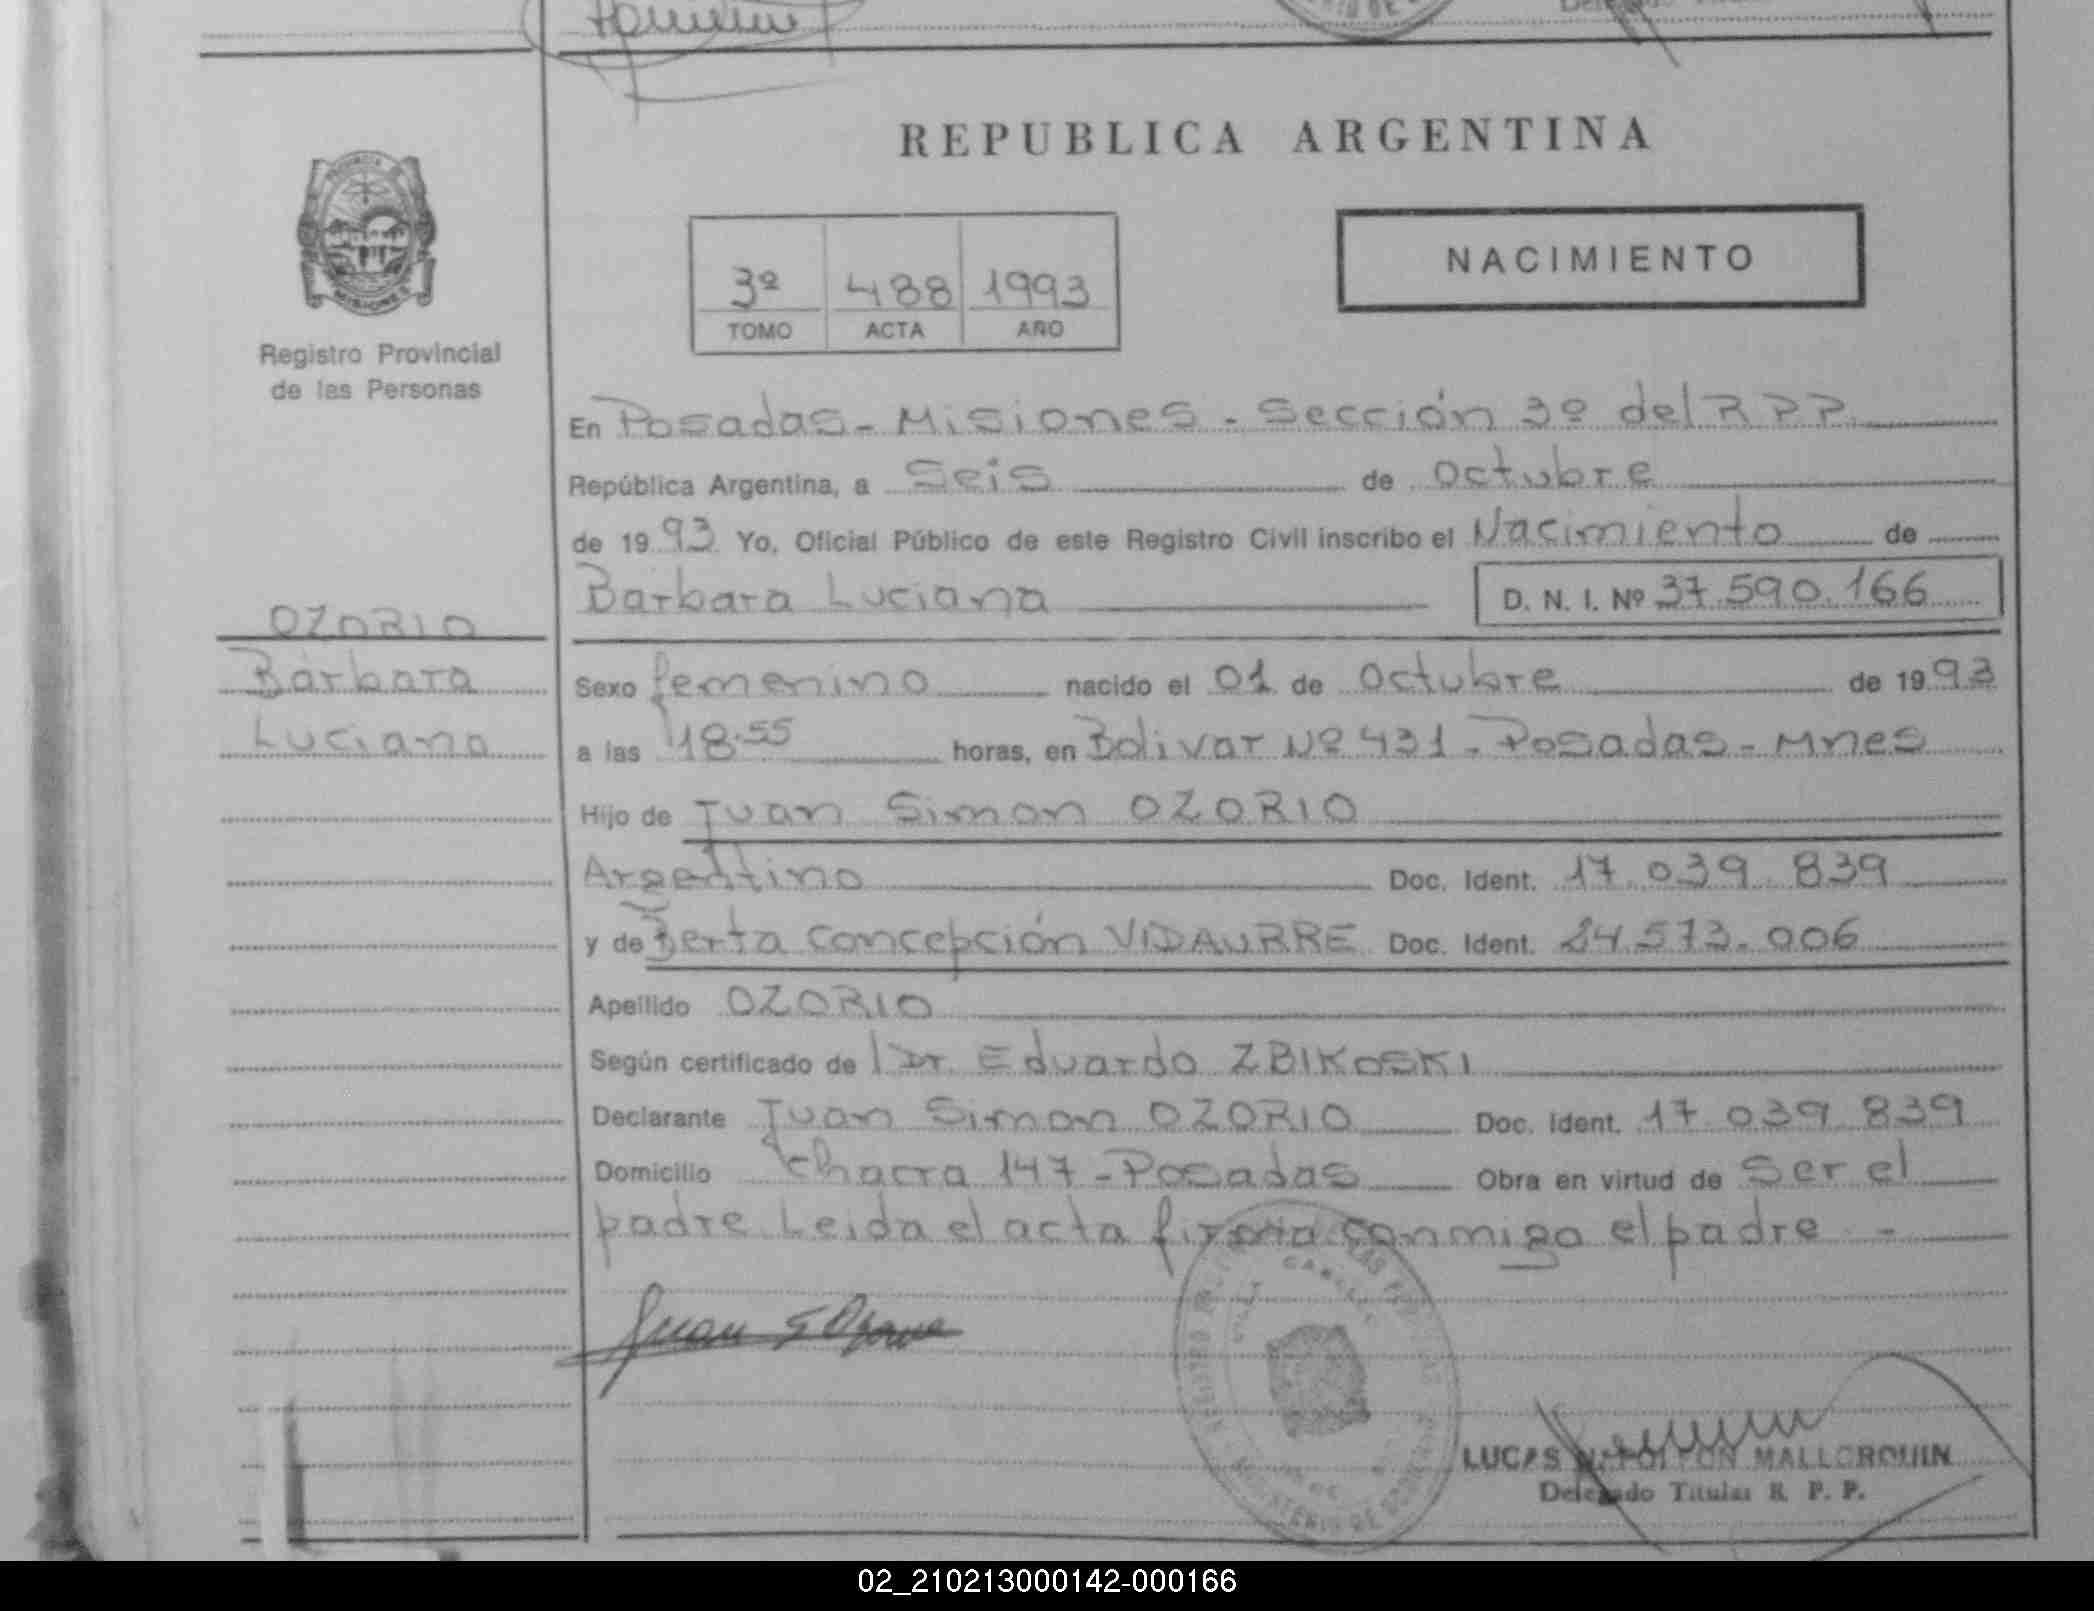 REPUBLICA ARGENTINA
NACIMIENTO
3º 488 1993
TOMO ACTA AÑO
MISIONES
Registro Provincial
de las Personas
En Posadas - Misiones - Sección 3º del R P P
República Argentina, a Seis de Octubre
de 1993 Yo, Oficial Público de este Registro Civil inscribo el Nacimiento de
Barbara Luciana D. N. I. Nº 37.590.166
OZORIO
Bárbara
Luciana
Sexo femenino nacido el 01 de Octubre de 1993
a las 18.55 horas, en Bolivar Nº 431 - Posadas - Mnes
Hijo de Juan Simon OZORIO
Argentino Doc. Ident. 17.039.839
y de Berta Concepción VIDAURRE Doc. Ident. 24.573.006
Apellido OZORIO
Según certificado de l Dr. Eduardo ZBIKOSKI
Declarante Juan Simon OZORIO Doc. Ident. 17.039.839
Domicilio Chacra 147 - Posadas Obra en virtud de Ser el
padre. Leida el acta firma conmigo el padre -
Juan S
LUCAS MALLORQUIN
Delegado Titular R. P. P.
02_210213000142-000166